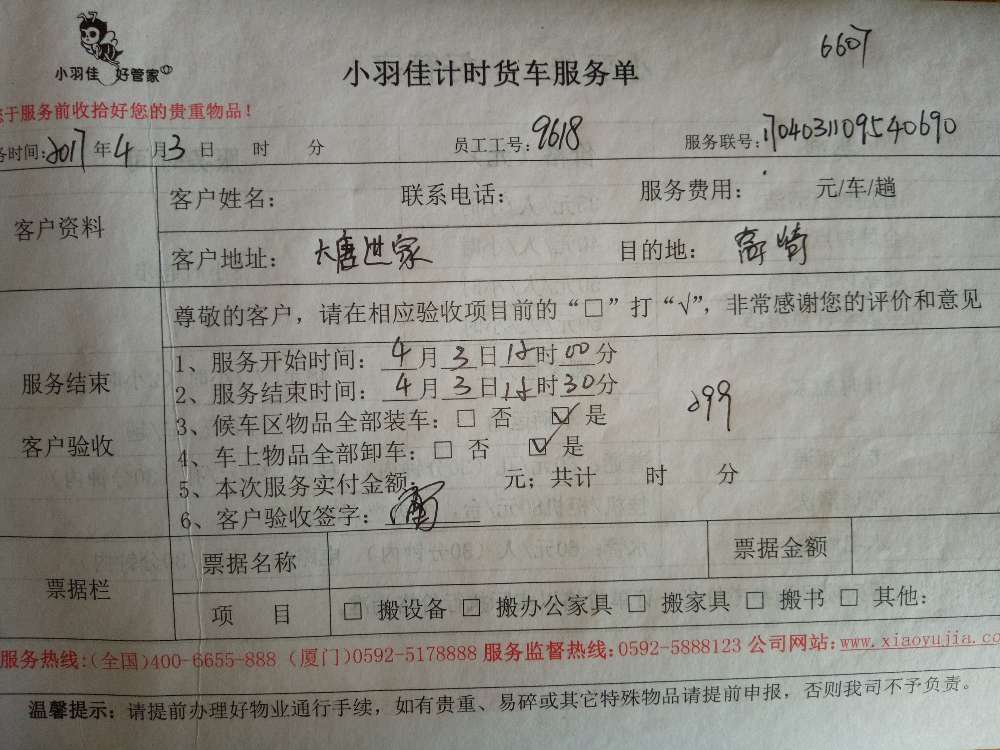 小羽佳 好管家
6607
小羽佳计时货车服务单
于服务前收拾好您的贵重物品！
务时间：2017年4月3日 时 分 员工工号：9618 服务联号：170403110954 0690
客户资料
客户姓名： 联系电话： 服务费用： 元/车/趟
客户地址：大唐世家 目的地：高崎
服务结束
客户验收
尊敬的客户，请在相应验收项目前的“□”打“√”，非常感谢您的评价和意见
1、服务开始时间：4月3日18时00分
2、服务结束时间：4月3日18时30分
3、候车区物品全部装车：□ 否 ☑ 是
299
4、车上物品全部卸车：□ 否 ☑ 是
5、本次服务实付金额： 元；共计 时 分
6、客户验收签字：
票据栏
票据名称 票据金额
项 目 □ 搬设备 □ 搬办公家具 □ 搬家具 □ 搬书 □ 其他：
服务热线：(全国)400-6655-888 (厦门)0592-5178888 服务监督热线：0592-5888123 公司网站：www.xiaoyujia.co
温馨提示：请提前办理好物业通行手续，如有贵重、易碎或其它特殊物品请提前申报，否则我司不予负责。